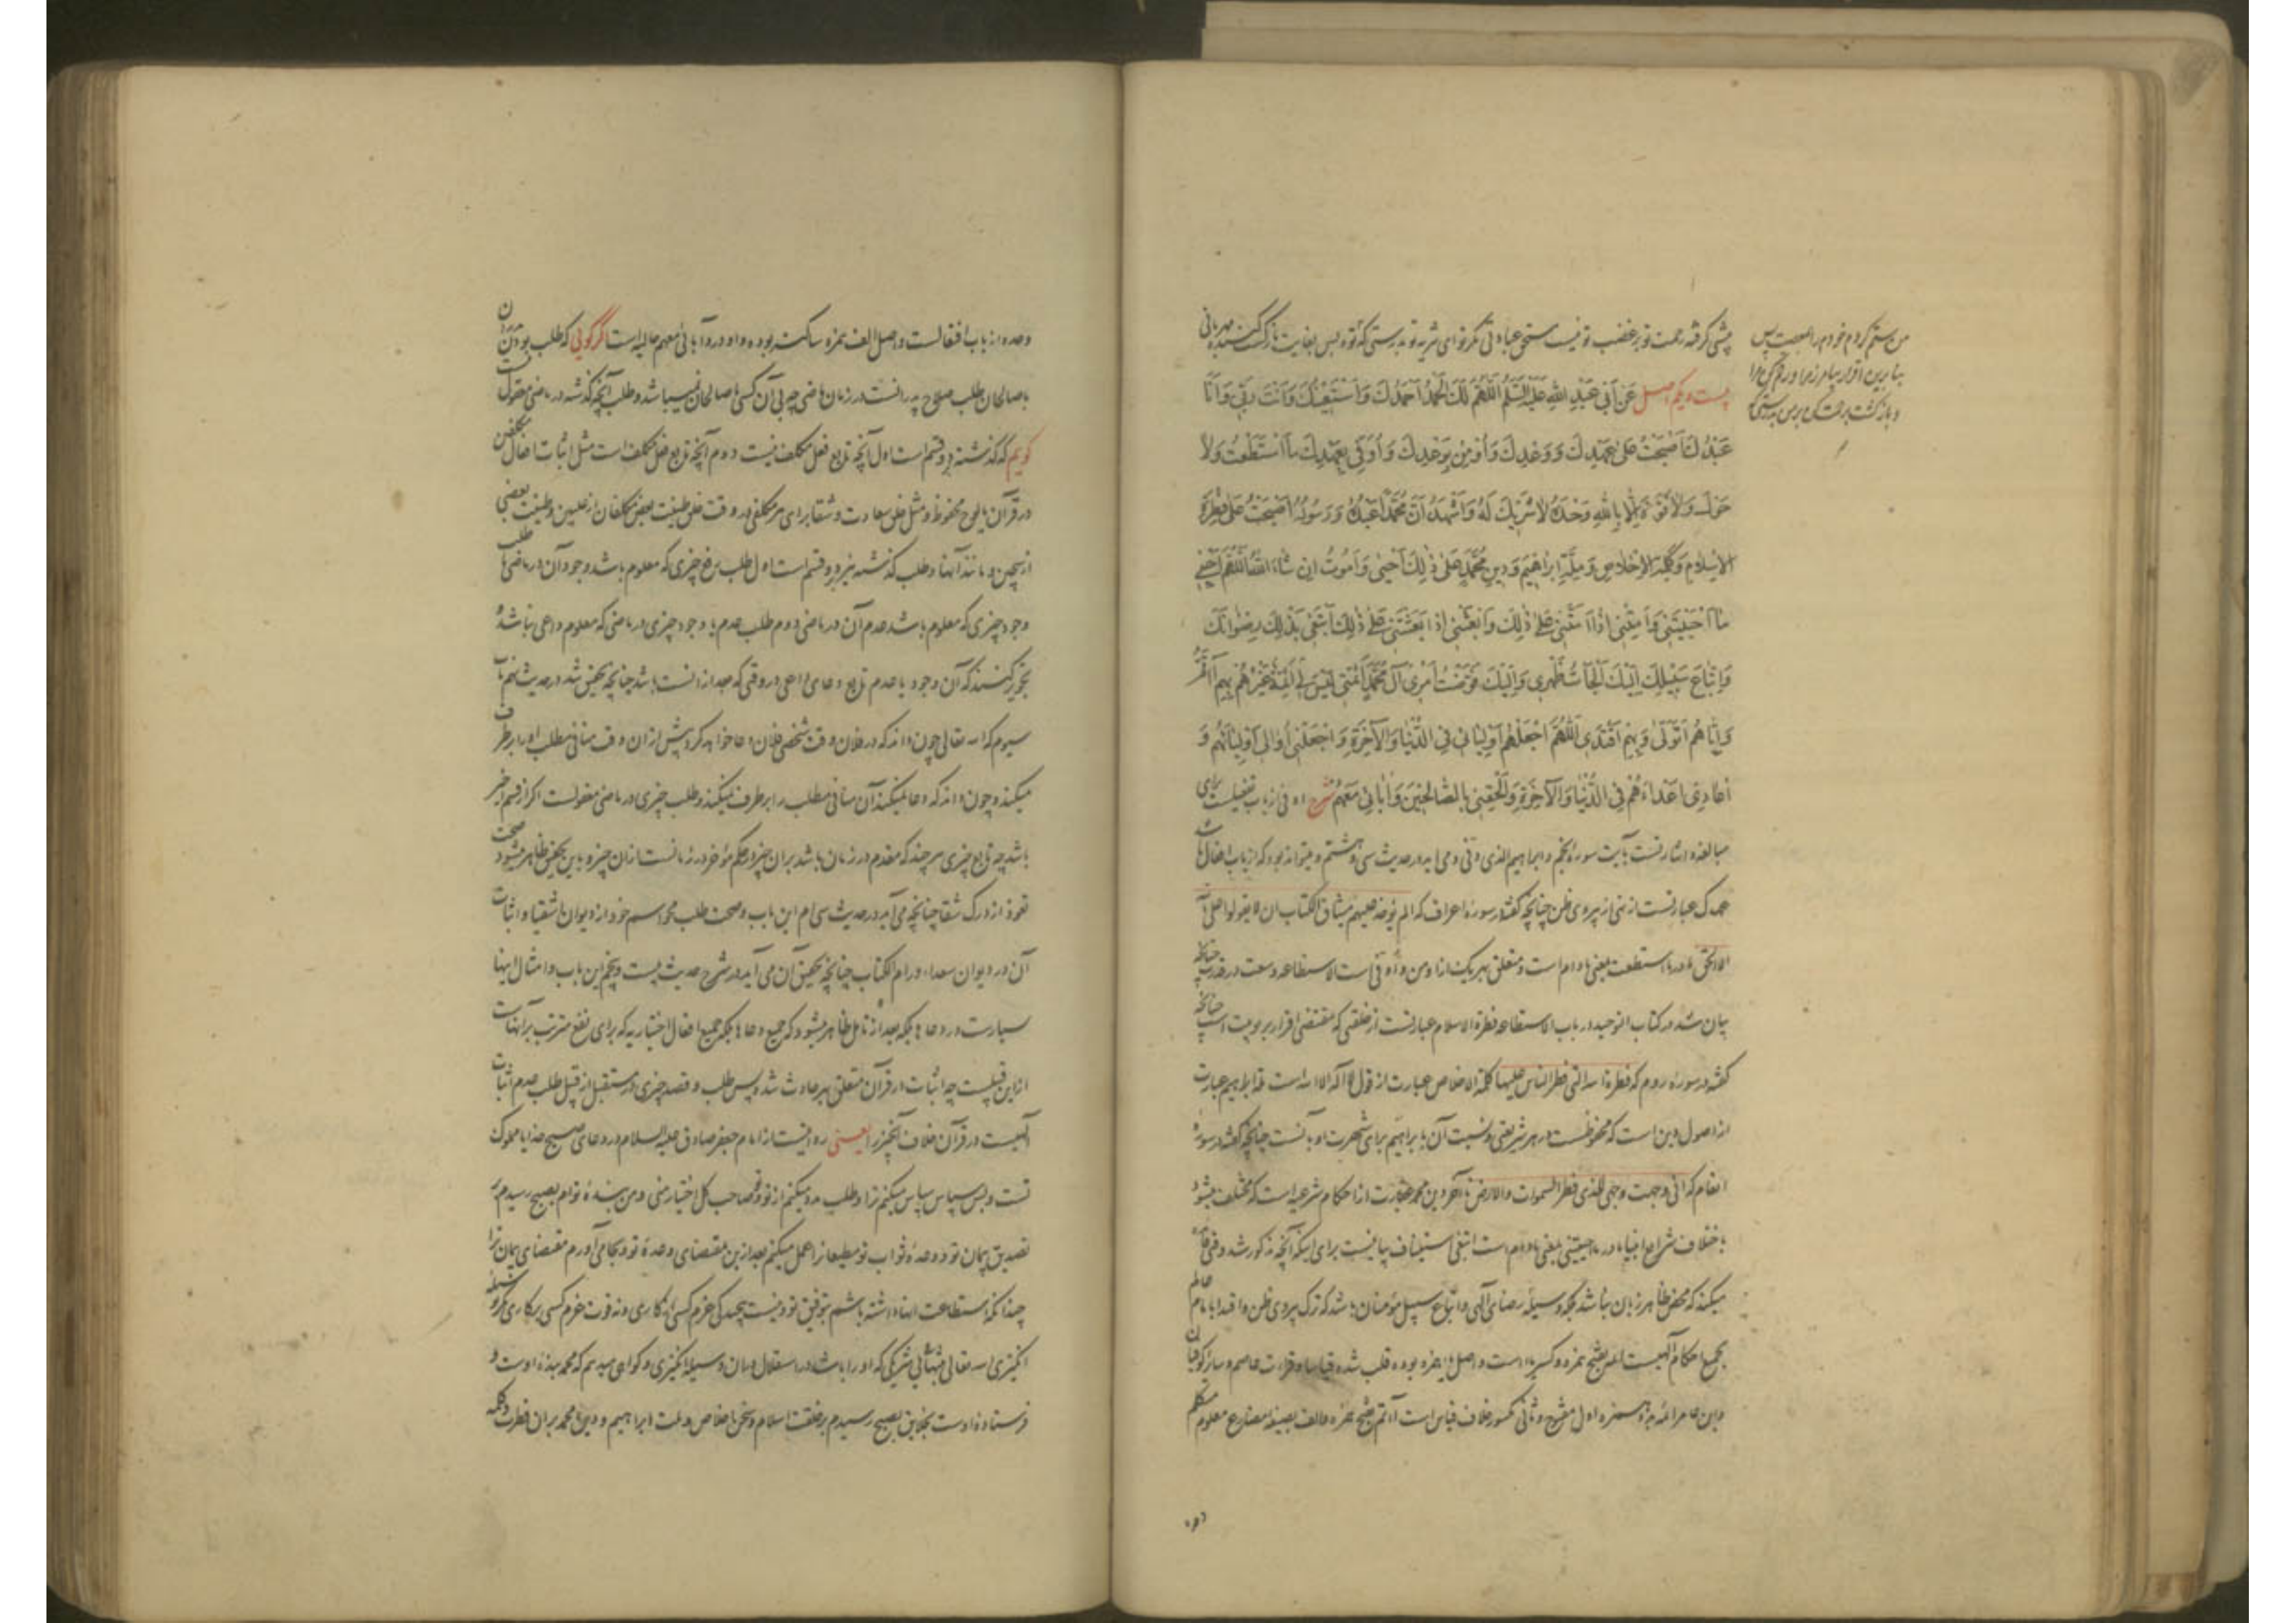 پیشی گرفته رحمت تو بر غضب تو نیست مستحق عبادتی مگر تو ای شریه تو بدرستی که تو بس بغایت بازگشت کننده مهربانی
من ستم کردم خودم را بمعصیت پس
بیست و یکم اصل عَنْ أَبِي عَبْدِ اللَّهِ عَلَيْهِ السَّلَمُ اَللَّهُمَّ لَكَ الْحَمْدُ أَحْمَدُكَ وَأَسْتَعِينُكَ وَأَنْتَ رَبِّي وَأَنَا
عَبْدُكَ أَصْبَحْتُ عَلَى عَهْدِكَ وَوَعْدِكَ وَأُؤْمِنُ بِوَعْدِكَ وَأُوفِي بِعَهْدِكَ مَا اسْتَطَعْتُ وَلَا
حَوْلَ وَلَا قُوَّةَ إِلَّا بِاللَّهِ وَحْدَهُ لَا شَرِيكَ لَهُ وَأَشْهَدُ أَنَّ مُحَمَّدًا عَبْدُهُ وَرَسُولُهُ أَصْبَحْتُ عَلَى فِطْرَةِ
الْإِسْلَامِ وَكَلِمَةِ الْإِخْلَاصِ وَمِلَّةِ إِبْرَاهِيمَ وَدِينِ مُحَمَّدٍ عَلَى ذَلِكَ أَحْيَى وَأَمُوتُ إِنْ شَاءَ اللَّهُ اَللَّهُمَّ أَحْيِنِي
مَا أَحْيَيْتَنِي وَأَمِتْنِي إِذَا أَمَتَّنِي عَلَى ذَلِكَ وَابْعَثْنِي إِذَا بَعَثْتَنِي عَلَى ذَلِكَ أَبْتَغِي بِذَلِكَ رِضْوَانَكَ
وَاتِّبَاعَ سَبِيلِكَ إِلَيْكَ أَلْجَأْتُ ظَهْرِي وَإِلَيْكَ فَوَّضْتُ أَمْرِي آلُ مُحَمَّدٍ أَئِمَّتِي لَيْسَ لِي أَئِمَّةٌ غَيْرُهُمْ بِهِمْ أَأْتَمُّ
وَإِيَّاهُمْ أَتَوَلَّى وَبِهِمْ أَقْتَدِي اَللَّهُمَّ اجْعَلْهُمْ أَوْلِيَائِي فِي الدُّنْيَا وَالْآخِرَةِ وَاجْعَلْنِي أُوَالِي أَوْلِيَاءَهُمْ وَ
أُعَادِي أَعْدَاءَهُمْ فِي الدُّنْيَا وَالْآخِرَةِ وَأَلْحِقْنِي بِالصَّالِحِينَ وَآبَائِي مَعَهُمْ شرح اوفی از باب تفعیلست برای
مبالغه و اشارتست بآیت سورهٔ نجم و ابراهیم الذی وفی و می‌آید در حدیث سی و هشتم و میتواند بود که از باب افعال باشد
عهدک عبارتست از نهی از پیروی ظن چنانچه گفته در سورهٔ اعراف که الم یؤخذ علیهم میثاق الکتاب ان لا یقولوا علی الله
الا الحق ما در ما استطعت بمعنی ما دام است و متعلق بهر یک از اومن و اوفی است الاستطاعه وسعت در قدرت چنانچه
بیان شد در کتاب التوحید در باب الاستطاعه فطرة الاسلام عبارتست از خلقتی که مقتضی اقرار بربوبیت است چنانچه
گفته در سورهٔ روم که فطرة الله التی فطر الناس علیها کلمة الاخلاص عبارت از قول لا اله الا الله است ملة ابراهیم عبارت
از اصول دین است که محفوظست در هر شریعتی و نسبت آن بابراهیم برای شهرت او بآنست چنانچه گفته در سورهٔ
انعام که انی وجهت وجهی للذی فطر السموات والارض تا آخر دین محمد عبارت از احکام شرعیه است که مختلف میشود
باختلاف شرایع انبیا ما در ما احییتنی بمعنی ما دام است ابتغی استیناف بیانیست برای اینکه آنچه مذکور شد وقتی فائده
میکند که محض ظاهر زبان نباشد بلکه وسیلهٔ رضای الهی و اتباع سبیل مؤمنان باشد که ترک پیروی ظن و اقتدا بامام عالم
بجمیع احکام الهیست ائمه بفتح همزه و کسر یاء است و اصل یا همزه بوده قلب شده قیاسا و قراءت عاصم و سایر کوفیان
و ابن عامر ائمه بدو همزه اول مفتوح و ثانی مکسور خلاف قیاس است أأتم بفتح همزه و الف بصیغهٔ مضارع معلوم متکلم
وحده از باب افتعالست و اصل الف همزه ساکنه بوده واو در و آبائی معهم حالیه است اگر گویی که طلب بودن پدران
با صالحان طلب صلاح پدرانست در زمان ماضی چه بی آن کسی با صالحان نمیباشد و طلب آنچه گذشته در ماضی معقول نیست
گویم که گذشته دو قسم است اول آنچه تابع فعل مکلف نیست دوم آنچه تابع فعل مکلف است مثل اثبات افعال مکلفین
در قرآن یا لوح محفوظ و مثل خلق سعادت و شقا برای هر مکلفی در وقت خلق طینت بعض مکلفان از علیین و طینت بعضی
از سجین و مانند آنها و طلب گذشته نیز دو قسم است اول طلب رفع چیزی که معلوم باشد وجود آن در ماضی یا طلب
وجود چیزی که معلوم باشد عدم آن در ماضی دوم طلب عدم یا وجود چیزی در ماضی که معلوم داعی نباشد و
تجویز کنند که آن وجود یا عدم تابع دعای داعی در وقتی که بعد از آنست باشد چنانچه تحقیق شد در حدیث نهم باب
سیوم که الله تعالی چون داند که در فلان وقت شخصی فلان دعا خواهد کرد پیش از ان وقت منافی مطلب او را برطرف
میکند و چون داند که دعا نمیکند آن منافی مطلب را برطرف نمیکند و طلب چیزی در ماضی معقولست اگر از قسم اخیر
باشد چه تابع چیزی هر چند که مقدم در زمان باشد بران چیز در حکم مؤخر در زمانست ازان چیز و باین تحقیق ظاهر میشود صحت
تعوذ از درک شقا چنانچه می‌آید در حدیث سی‌ام این باب و صحت طلب محو اسم خود از دیوان اشقیا و اثبات
آن در دیوان سعدا در ام الکتاب چنانچه تحقیق آن می‌آید در شرح حدیث بیست و پنجم این باب و امثال اینها
بسیارست در دعاها بلکه بعد از تامل ظاهر میشود که جمیع دعاها بلکه جمیع افعال اختیاریه که برای نفع مترتب بر آنهاست
ازین قبیلست چه اثبات در قرآن متعلق بهر حادث شد و پس طلب و قصد چیزی در مستقبل از قبیل طلب عدم اثبات
الهیست در قرآن خلاف آنچیز را یعنی روایتست از امام جعفر صادق علیه السلام در دعای صبح خدایا مملوک
تست و بس سپاس سپاس میکنم ترا و طلب مدد میکنم از تو و تو صاحب کل اختیار منی و من بندهٔ توام بصبح رسیدم بر
تصدیق پیمان تو و وعدهٔ ثواب تو مطیعانرا عمل میکنم بعد ازین بمقتضای وعدهٔ تو و بجا می‌آورم مقتضای پیمان ترا
چندانکه استطاعت آنها داشته باشم بتوفیق تو و نیست پیچیدگی عزم کسی از کاری و نه قوت عزم کسی بر کاری مگر بوسیله
انگیزی الله تعالی بتنهائی شریکی که او را باشد در استقلال و بیان وسیله انگیزی و گواهی میدهم که محمد بندهٔ اوست و
فرستادهٔ اوست بخلایق بصبح رسیدم بر خلقت اسلام و سخن اخلاص و ملت ابراهیم و دین محمد بران فطرت و کلمه